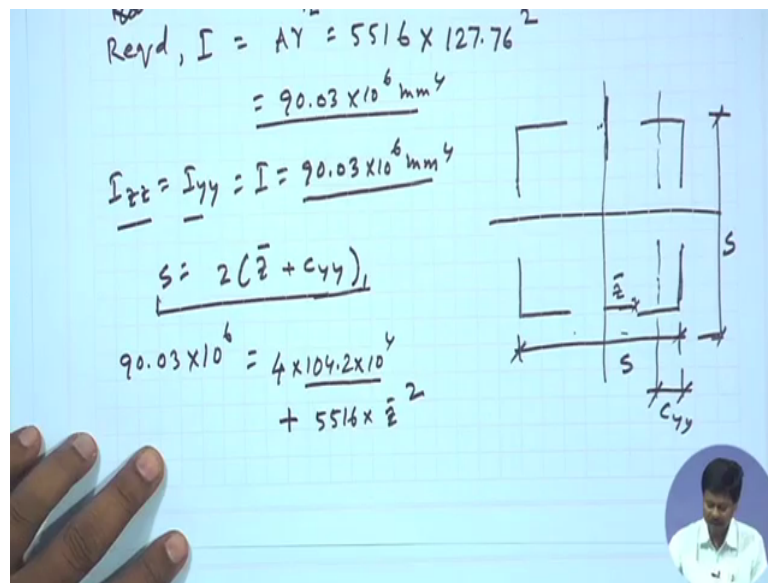 Reqd, I = Ar² = 5516 × 127.76²
= 90.03 × 10⁶ mm⁴
Izz = Iyy = I = 90.03 × 10⁶ mm⁴
S = 2(z̄ + Cyy)
90.03 × 10⁶ = 4 × 104.2 × 10⁴
+ 5516 × z̄²
S
z̄
S
Cyy